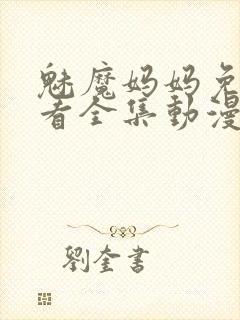 魅魔妈妈免
看全集動漫
劉奎書